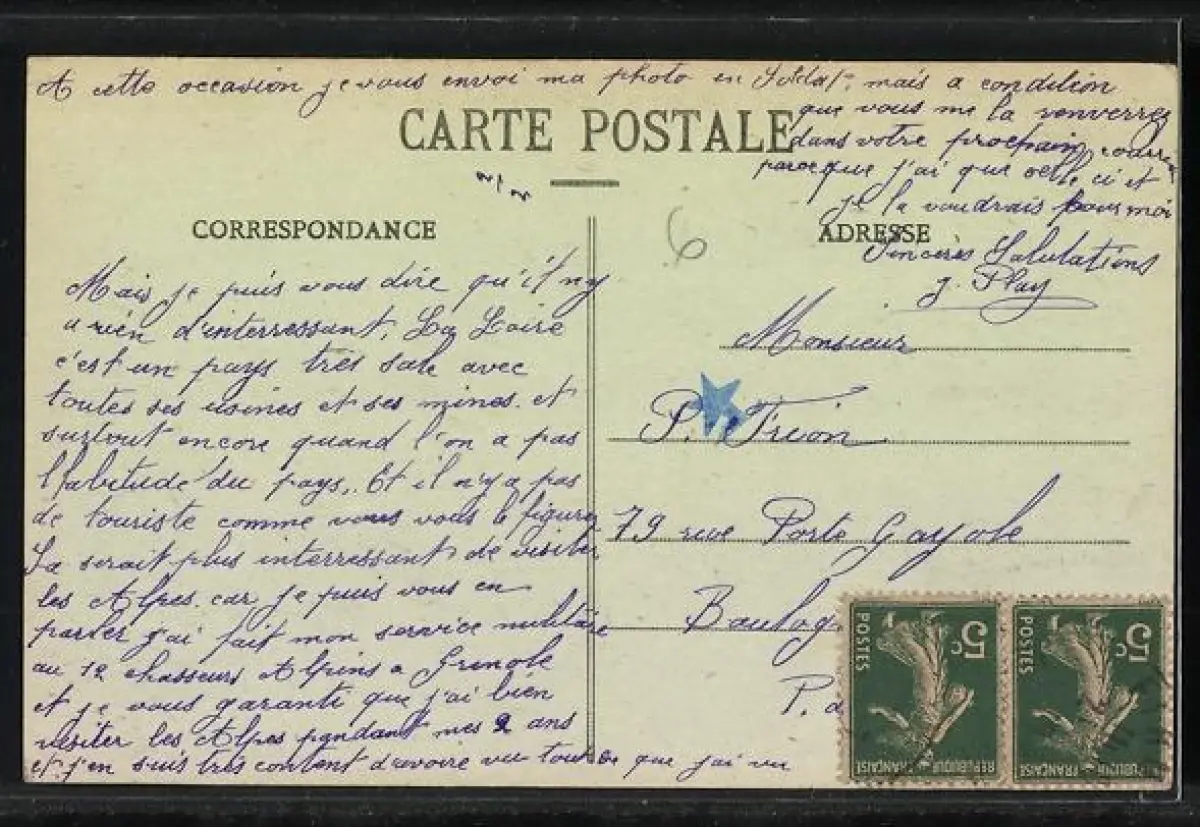 A cette occasion je vous envoi ma photo en Soldat, mais a condition
que vous me la renverrez
dans votre prochain courrier
parceque j'ai que celle ci et
je la voudrais pour moi
Sincères Salutations
J. Play
CARTE POSTALE
CORRESPONDANCE
ADRESSE
6
Mais je puis vous dire qu'il n'y
a rien d'interressant, La Loire
c'est un pays très sale avec
toutes ses usines et ses mines. et
surtout encore quand l'on a pas
l'habitude du pays,. Et il n'y a pas
de touriste comme vous vous le figurez
Sa serait plus interressant de visiter
les Alpes. car je puis vous en
parler j'ai fait mon service militaire
au 12 chasseurs Alpins a Grenoble
et je vous garanti que j'ai bien
visiter les Alpes pendant mes 2 ans
et j'en suis très content d'avoire vu tout ce que j'ai vu
Monsieur
P. Trion
79 rue Porte Gayole
Boulog
P. d
5c
POSTES
REPUBLIQUE FRANÇAISE
5c
POSTES
REPUBLIQUE FRANÇAISE